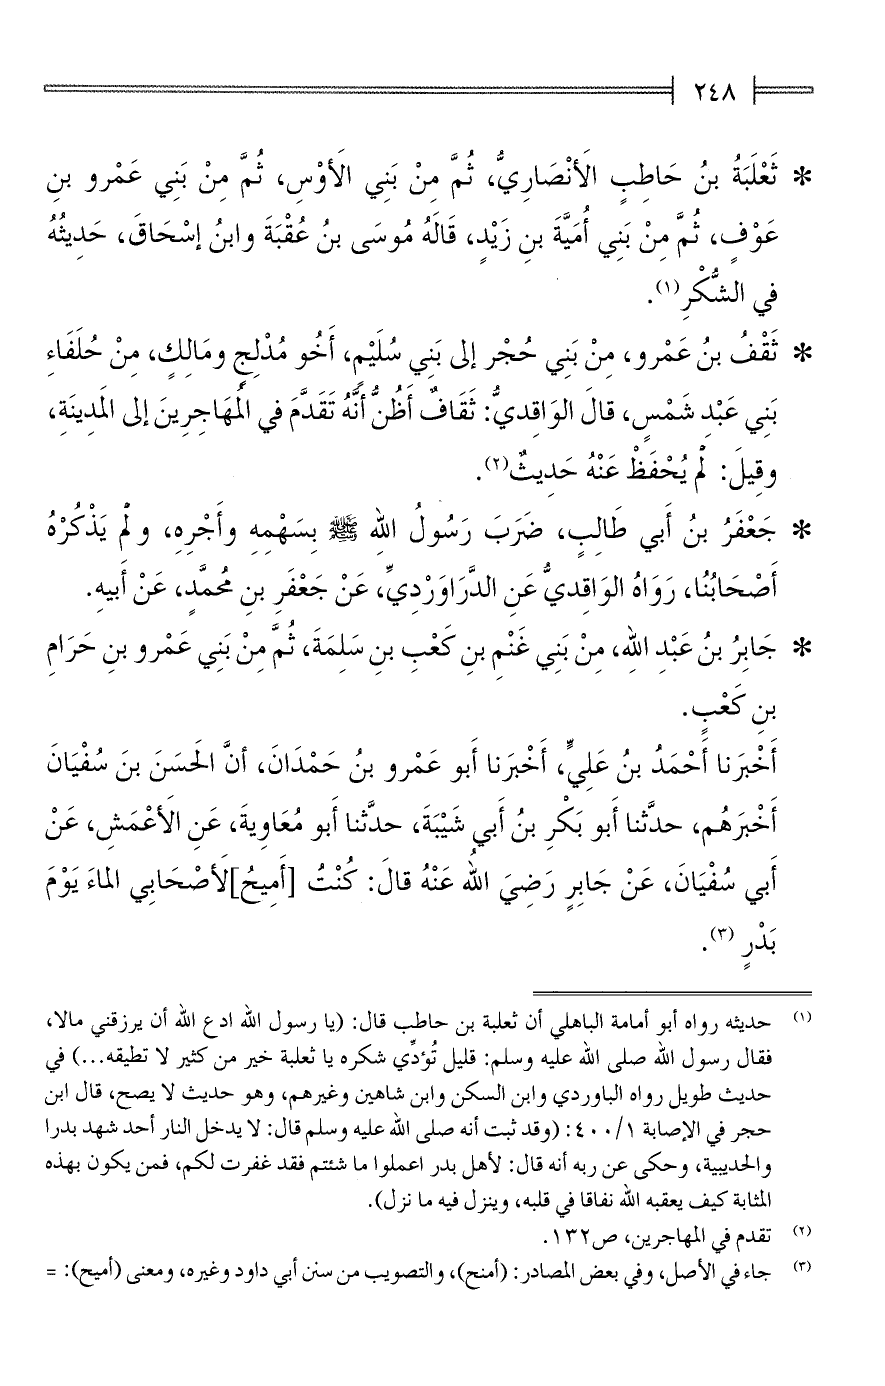 ٢٤٨
* ثَعْلَبَةُ بنُ حَاطِبٍ الأَنْصَارِيُّ، ثُمَّ مِنْ بَنِي الأَوْسِ، ثُمَّ مِنْ بَنِي عَمْرو بنِ
عَوْفٍ، ثُمَّ مِنْ بَنِي أُمَيَّةَ بنِ زَيْدٍ، قَالَهُ مُوسَى بنُ عُقْبَةَ وابنُ إسْحَاقَ، حَدِيثُهُ
في الشُّكْرِ(١).
* ثَقْفُ بنُ عَمْرو، مِنْ بَنِي حُجْر إلى بَنِي سُلَيْمٍ، أَخُو مُدْلجٍ ومَالِكٍ، مِنْ حُلَفَاءِ
بَنِي عَبْدِ شَمْسٍ، قالَ الوَاقِديُّ: ثَقَافٌ أَظُنُّ أنَّهُ تَقَدَّمَ في المُهَاجِرينَ إلى المَدِينَةِ،
وقِيلَ: لَمْ يُحْفَظْ عَنْهُ حَدِيثٌ(٢).
* جَعْفَرُ بنُ أَبي طَالِبٍ، ضَرَبَ رَسُولُ اللهِ ﷺ بِسَهْمِهِ وأَجْرِهِ، ولَمْ يَذْكُرْهُ
أَصْحَابُنُا، رَوَاهُ الوَاقِديُّ عَنِ الدَّرَاوَرْديِّ، عَنْ جَعْفَرِ بنِ مُحمَّدٍ، عَنْ أَبيهِ.
* جَابِرُ بنُ عَبْدِ اللهِ، مِنْ بَنِي غَنْمِ بنِ كَعْبِ بنِ سَلِمَةَ، ثُمَّ مِنْ بَنِي عَمْرو بنِ حَرَامِ
بنِ كَعْبٍ.
أَخْبَرَنا أَحْمَدُ بنُ عَلِيٍّ، أَخْبَرَنا أبو عَمْرو بنُ حَمْدَانَ، أنَّ الحَسَنَ بنَ سُفْيَانَ
أَخْبَرَهُم، حدَّثنا أبو بَكْرِ بنُ أَبي شَيْبَةَ، حدثَّنا أبو مُعَاويةَ، عَنِ الأَعْمَشِ، عَنْ
أَبي سُفْيَانَ، عَنْ جَابِرٍ رَضِيَ اللهُ عَنْهُ قالَ: كُنْتُ [أَمِيحُ]لأَصْحَابي الماءَ يَوْمَ
بَدْرٍ (٣).
(١) حديثه رواه أبو أمامة الباهلي أن ثعلبة بن حاطب قال: (يا رسول الله ادع الله أن يرزقني مالا،
فقال رسول الله صلى الله عليه وسلم: قليل تُؤدِّي شكره يا ثعلبة خير من كثير لا تطيقه...) في
حديث طويل رواه الباوردي وابن السكن وابن شاهين وغيرهم، وهو حديث لا يصح، قال ابن
حجر في الإصابة ٤٠٠/١: (وقد ثبت أنه صلى الله عليه وسلم قال: لا يدخل النار أحد شهد بدرا
والحديبية، وحكى عن ربه أنه قال: لأهل بدر اعملوا ما شئتم فقد غفرت لكم، فمن يكون بهذه
المثابة كيف يعقبه الله نفاقا في قلبه، وينزل فيه ما نزل).
(٢) تقدم في المهاجرين، ص١٣٢.
(٣) جاء في الأصل، وفي بعض المصادر: (أمنح)، والتصويب من سنن أبي داود وغيره، ومعنى (أميح): =